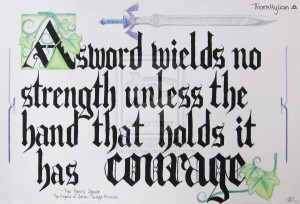 ThornHylian
A sword wields no
strength unless the
hand that holds it
has courage
- The Hero's Shade
The Legend of Zelda: Twilight Princess